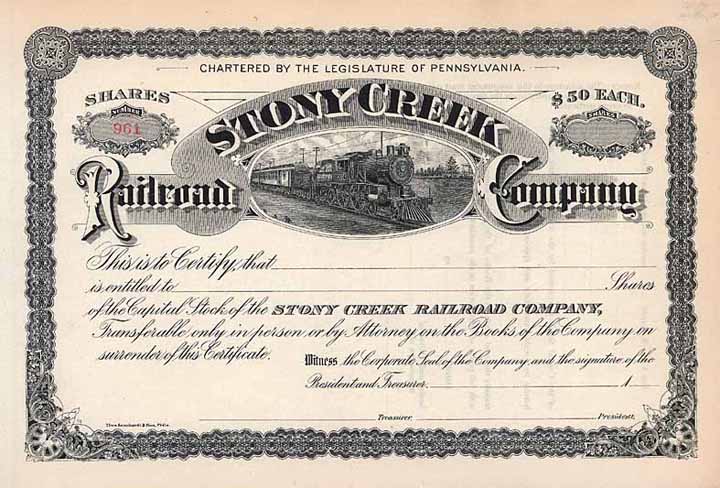 CHARTERED BY THE LEGISLATURE OF PENNSYLVANIA.
SHARES $50 EACH.
NUMBER SHARES
961
STONY CREEK
Railroad Company
This is to Certify, that
is entitled to Shares
of the Capital Stock of the STONY CREEK RAILROAD COMPANY,
Transferable only in person or by Attorney on the Books of the Company on
surrender of this Certificate.
Witness the Corporate Seal of the Company and the signature of the
President and Treasurer, 1
Treasurer. President.
Phila.